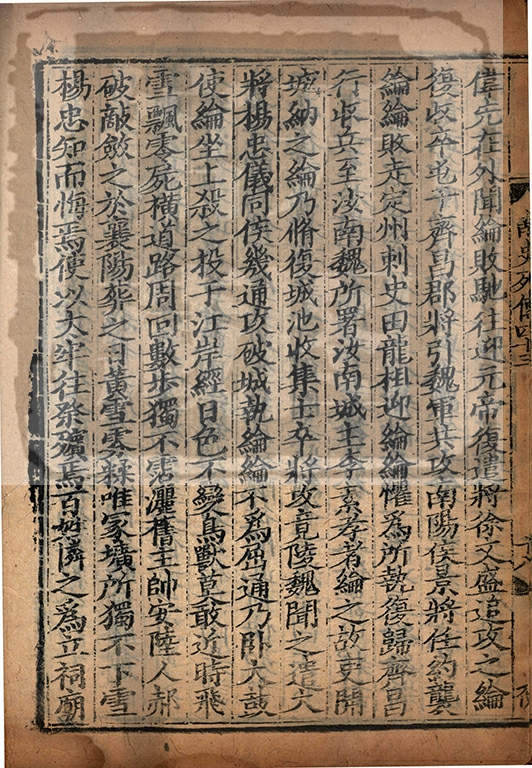 偉先在外聞綸敗馳往迎元帝復遣將徐文盛追攻之綸
復收卒屯于齊昌郡將引魏軍共攻南陽侯景將任約襲
綸綸敗走定州刺史田龍祖迎綸綸懼為所執復歸齊昌
行收兵至汝南魏所署汝南城主李素孝者綸之故吏開
城納之綸乃脩復城池收集士卒將攻竟陵魏聞之遣大
將楊忠儀同侯幾通攻破城執綸綸不為屈通乃卧大鼓
使綸坐上殺之投于江岸經日色不變鳥獸莫敢近時飛
雪飄零屍橫道路周回數步獨不霑灑舊主帥安陸人郝
破敵斂之於襄陽葬之日黃雪雰糅唯冢壙所獨不下雪
楊忠知而悔焉使以大牢往祭殯焉百姓憐之為立祠廟
南史列傳四十三